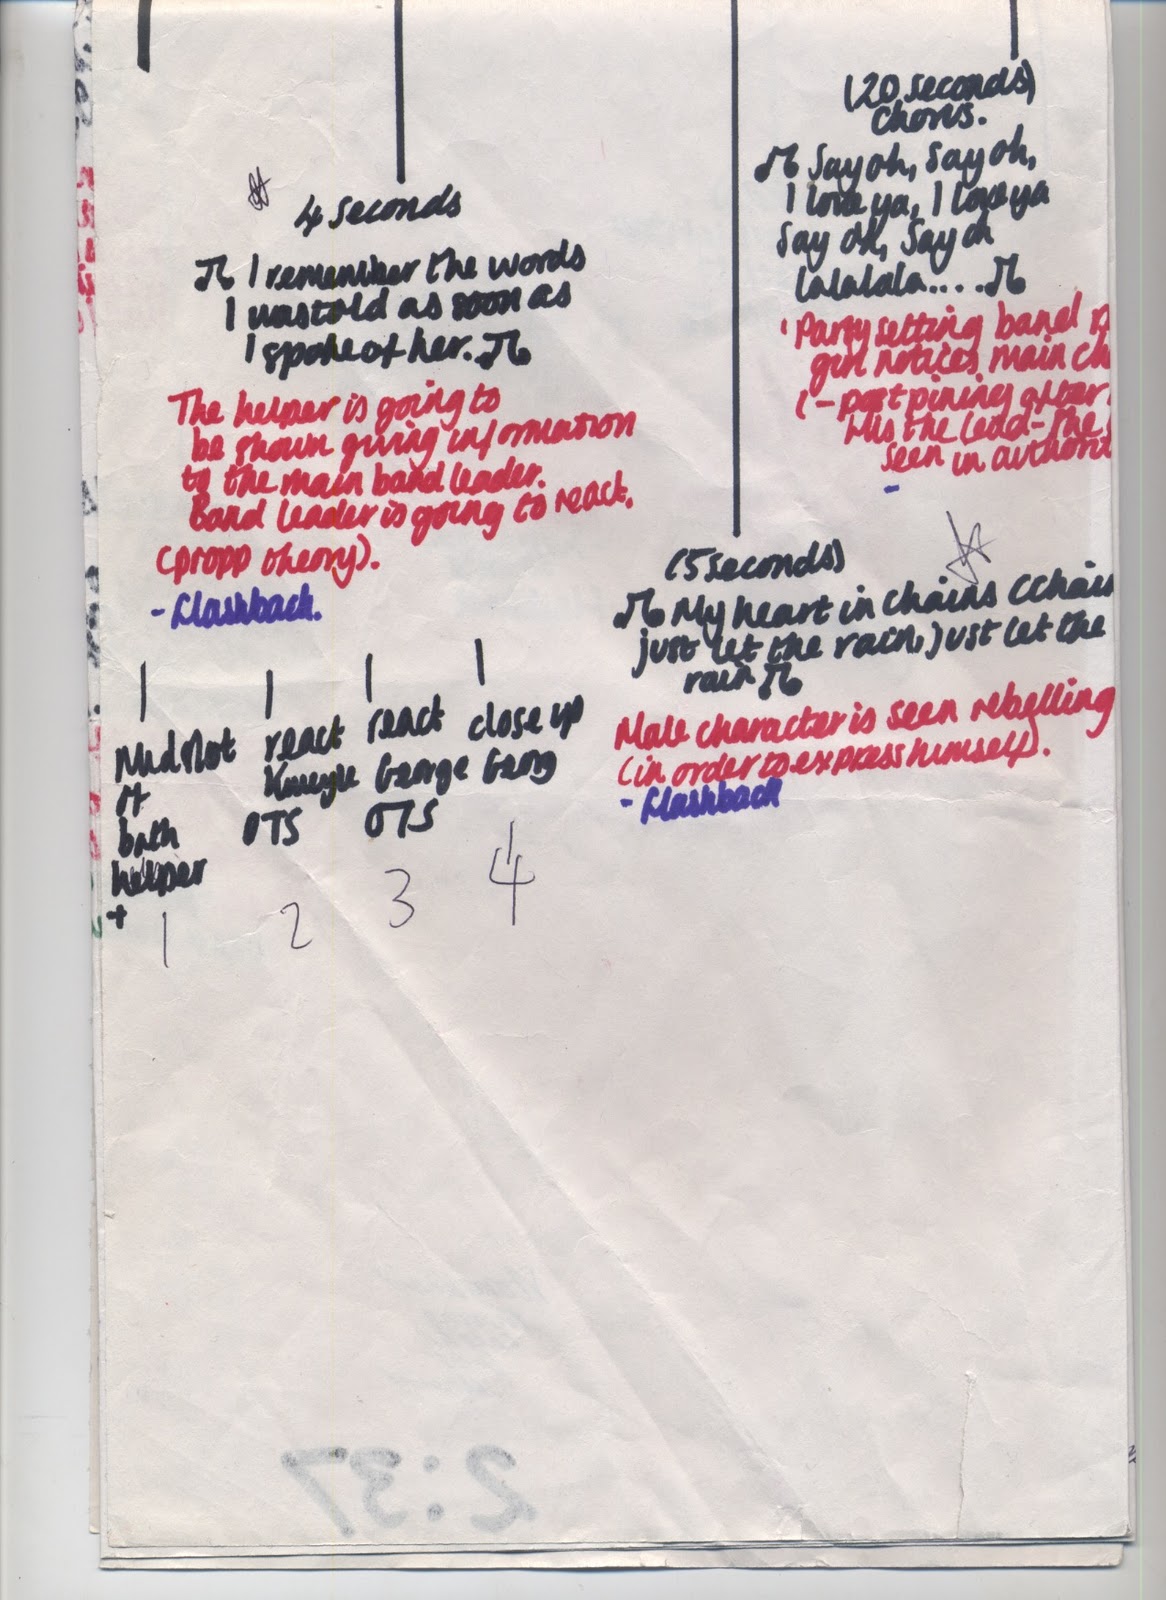 4 seconds
♫ I remember the words
I was told as soon as
I spoke of her. ♫
The helper is going to
be shown giving information
to the main band leader.
Band leader is going to react.
(propp theory).
- Flashback.
Midshot
of
both
helper
+
1
react
OTS
2
react
George
OTS
3
close up
Georg
4
(20 seconds)
Chorus.
♫ Say oh, Say oh,
I love ya, I love ya
Say oh, Say oh
lalalala.... ♫
'Party setting band
girl notices main ch
(- part pining after
the lead - the
seen in authori
-
(5 seconds)
♫ My heart in chains (chain
just let the rain, just let the
rain ♫
Male character is seen rebelling
(in order to express himself).
- Flashback
2:37